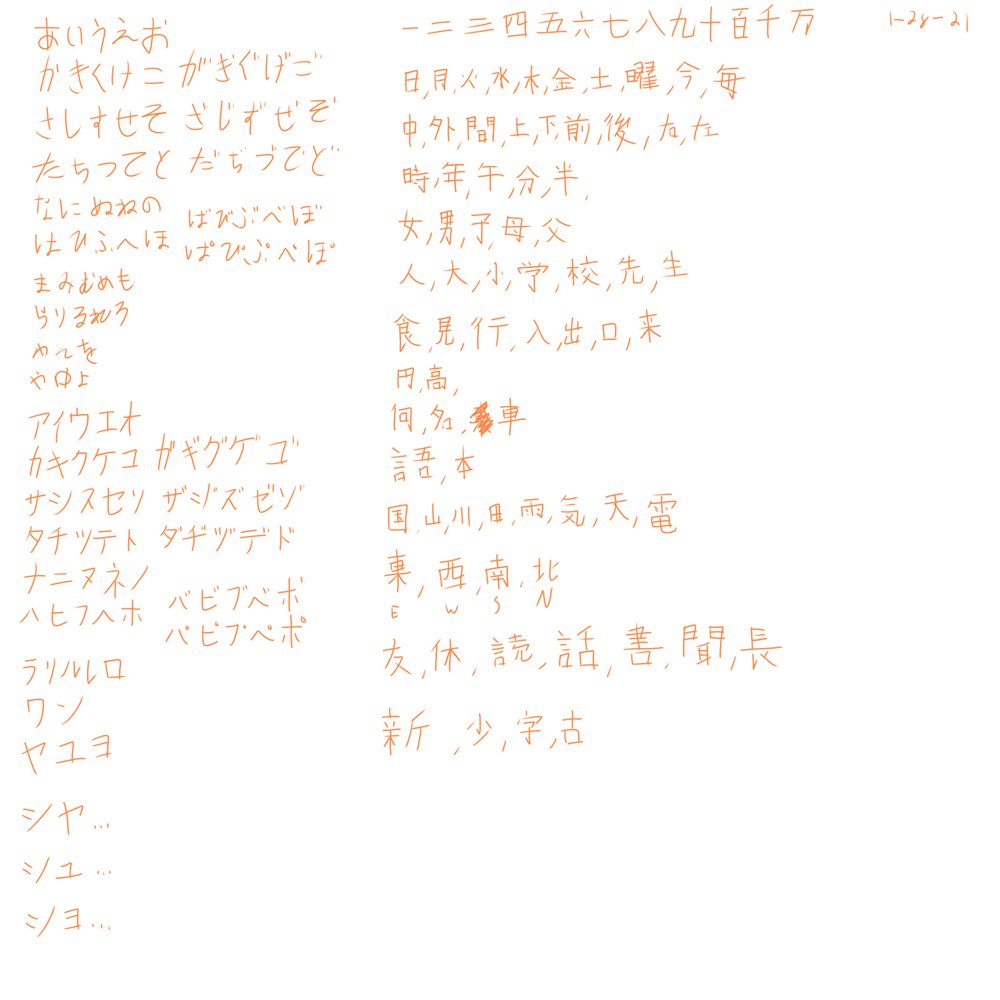 あいうえお
かきくけこ がぎぐげご
さしすせそ ざじずぜぞ
たちつてと だぢづでど
なにぬねの
はひふへほ
ばびぶべぼ
ぱぴぷぺぽ
まみむめも
らりるれろ
わんを
やゆよ
アイウエオ
カキクケコ ガギグゲゴ
サシスセソ ザジズゼゾ
タチツテト ダヂヅデド
ナニヌネノ
ハヒフヘホ
バビブベボ
パピプペポ
ラリルレロ
ワン
ヤユヨ
シヤ...
シユ...
シヨ...
一二三四五六七八九十百千万
1-28-21
日,月,火,水,木,金,土,曜,今,毎
中,外,間,上,下,前,後,右,左
時,年,午,分,半,
女,男,子,母,父
人,大,小,学,校,先,生
食,見,行,入,出,口,来
円,高,
何,名,車
語,本
国,山,川,田,雨,気,天,電
東,西,南,北
E W S N
友,休,読,話,書,聞,長
新,少,字,古